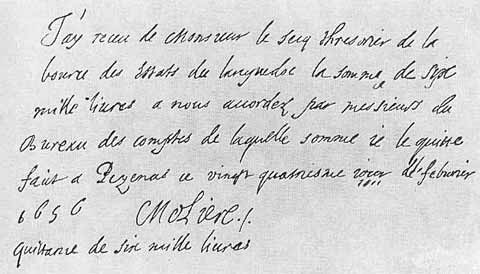 J'ay receu de Monsieur le Secq thresorier de la
bource des Estats du languedoc la somme de six
mille livres a nous accordez par messieurs du
Bureau des comptes de laquelle somme ie le quitte
faict a Pezenas ce vingt quatriesme iour de febvrier
1656 Moliere
quittance de six mille livres